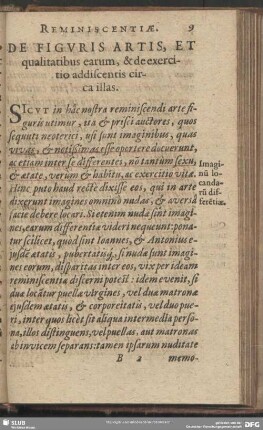 REMINISCENTIÆ. 9
DE FIGVRIS ARTIS, ET
qualitatibus earum, & de exerci-
tio addiscentis cir-
ca illas.
SICVT in hâc nostra reminiscendi arte fi-
guris utimur, ita & prisci auctores, quos
sequuti neoterici, usi sunt imaginibus, quas
vivas, & notissimas esse oportere docuerunt,
ac etiam inter se differentes, nõ tantùm sexu,
& ætate, verùm & habitu, ac exercitio vitæ.
Hinc puto haud rectè dixisse eos, qui in arte
dixerunt imagines omnino nudas, & aversâ
facie debere locari. Si etenim nuda sint imagi-
nes, earum differentia videri nequeunt: pona-
tur scilicet, quod sint Ioannes, & Antonius e-
jusdẽ ætatis, pubertatisq́;, si nuda sunt imagi-
nes eorum, disparitas inter eos, vix per ideam
reminiscentiæ discerni poterit: idem evenit, si
duæ locãtur puellæ virgines, vel duæ matronæ
ejusdem ætatis, & corporeitatis, vel duo pue-
ri, inter quos licèt sit aliqua intermedia perso-
na, illos distinguens, vel puellas, aut matronas
ab invicem separans: tamen ipsarum nuditate
Imagi-
nũ lo-
canda-
rũ dif-
ferẽtiæ.
B 2 memo-
SLUB
DFG